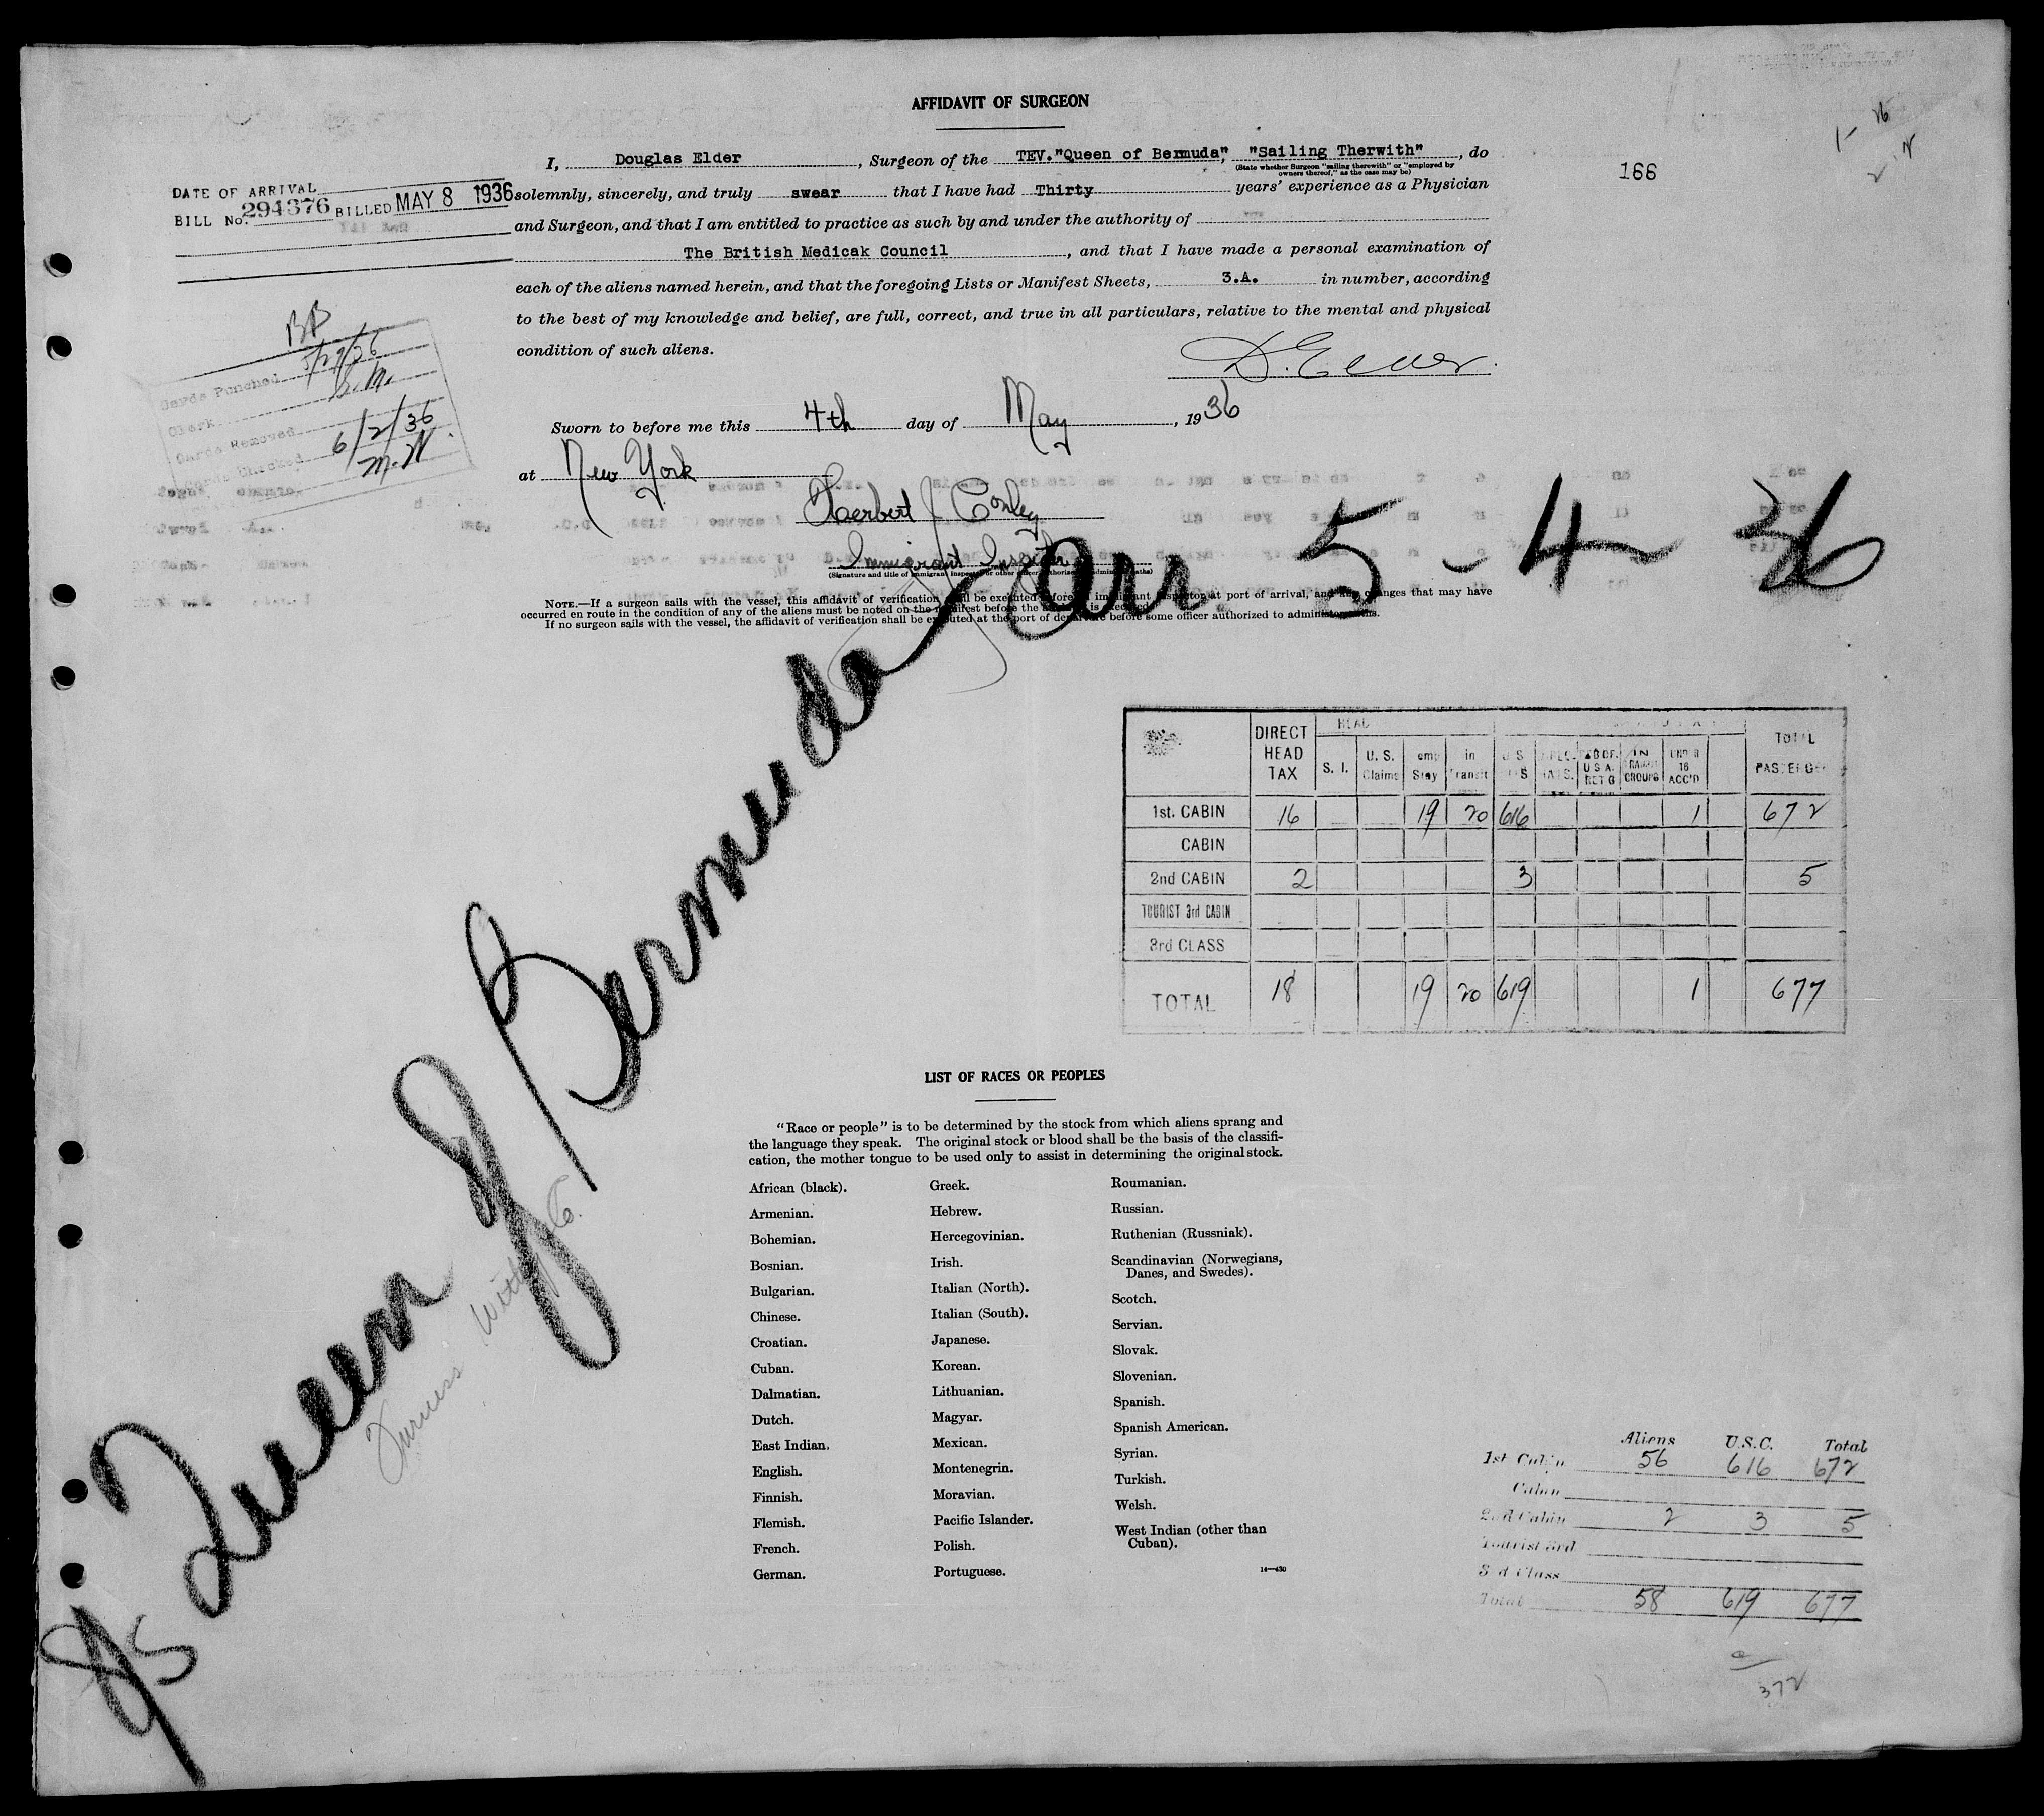 AFFIDAVIT OF SURGEON
I, Douglas Elder, Surgeon of the TEV."Queen of Bermuda", "Sailing Therwith", do
(State whether Surgeon "sailing therewith" or "employed by
owners thereof," as the case may be)
166
DATE OF ARRIVAL
BILL No. 294376 BILLED MAY 8 1936
solemnly, sincerely, and truly swear that I have had Thirty years' experience as a Physician
and Surgeon, and that I am entitled to practice as such by and under the authority of
The British Medicak Council, and that I have made a personal examination of
each of the aliens named herein, and that the foregoing Lists or Manifest Sheets, 3.A. in number, according
to the best of my knowledge and belief, are full, correct, and true in all particulars, relative to the mental and physical
condition of such aliens.
D. Elder.
BB
Cards Punched 5/29/36
Clerk S.M.
Cards Removed
Checked 6/2/36
M.W.
Sworn to before me this 4th day of May, 1936
at New York
Herbert J Conley
Immigrant Inspector
(Signature and title of immigrant inspector or other officer authorized to administer oaths)
Arr 5-4-36
NOTE.—If a surgeon sails with the vessel, this affidavit of verification shall be executed before immigrant inspector at port of arrival, and any changes that may have
occurred en route in the condition of any of the aliens must be noted on the manifest before the affidavit is executed.
If no surgeon sails with the vessel, the affidavit of verification shall be executed at the port of departure before some officer authorized to administer oaths.
S/S Queen of Bermuda
Furness Withy Co.
DIRECT HEAD TAX HEAD TOTAL PASSENGER
S. I. U. S. Claims Temp Stay in Transit U S IN TRANSIT GROUPS UNDER 16 ACC'D
1st. CABIN 16 19 20 616 1 672
CABIN
2nd CABIN 2 3 5
TOURIST 3rd CABIN
3rd CLASS
TOTAL 18 19 20 619 1 677
LIST OF RACES OR PEOPLES
"Race or people" is to be determined by the stock from which aliens sprang and
the language they speak. The original stock or blood shall be the basis of the classifi-
cation, the mother tongue to be used only to assist in determining the original stock.
African (black).
Armenian.
Bohemian.
Bosnian.
Bulgarian.
Chinese.
Croatian.
Cuban.
Dalmatian.
Dutch.
East Indian.
English.
Finnish.
Flemish.
French.
German.
Greek.
Hebrew.
Hercegovinian.
Irish.
Italian (North).
Italian (South).
Japanese.
Korean.
Lithuanian.
Magyar.
Mexican.
Montenegrin.
Moravian.
Pacific Islander.
Polish.
Portuguese.
Roumanian.
Russian.
Ruthenian (Russniak).
Scandinavian (Norwegians,
Danes, and Swedes).
Scotch.
Servian.
Slovak.
Slovenian.
Spanish.
Spanish American.
Syrian.
Turkish.
Welsh.
West Indian (other than
Cuban).
14—430
Aliens U.S.C. Total
1st Cabin 56 616 672
Cabin
2nd Cabin 2 3 5
Tourist 3rd
3rd Class
Total 58 619 677
372